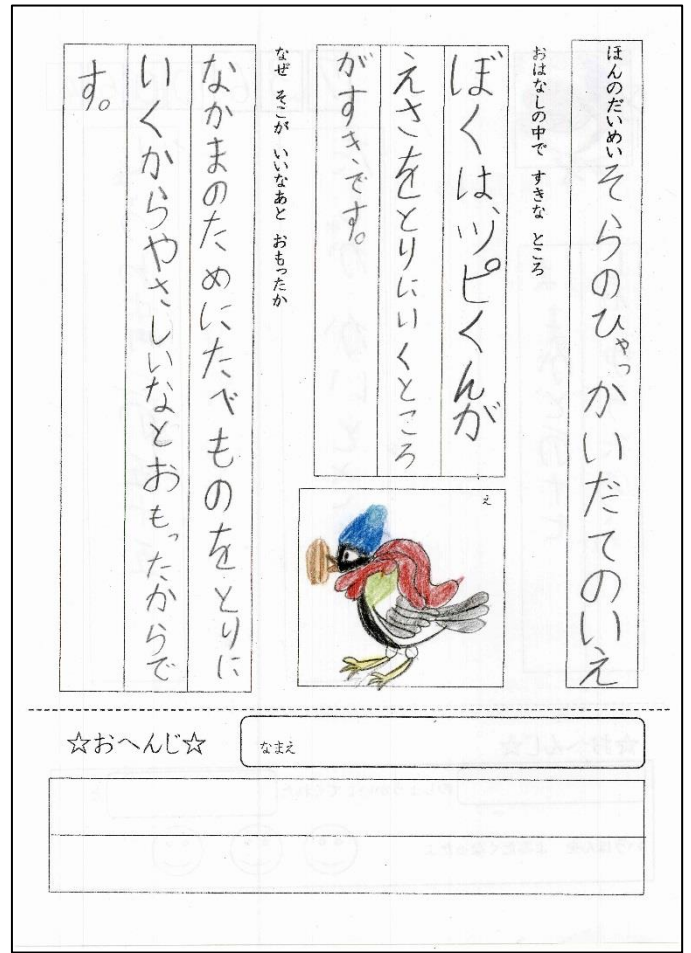 ほんのだいめい
そらのひゃっかいだてのいえ
おはなしの中で すきな ところ
ぼくは、ツピくんが
えさをとりにいくところ
がすきです。
なぜ そこが いいなあと おもったか
なかまのためにたべものをとりに
いくからやさしいなとおもったからで
す。
え
☆おへんじ☆
なまえ